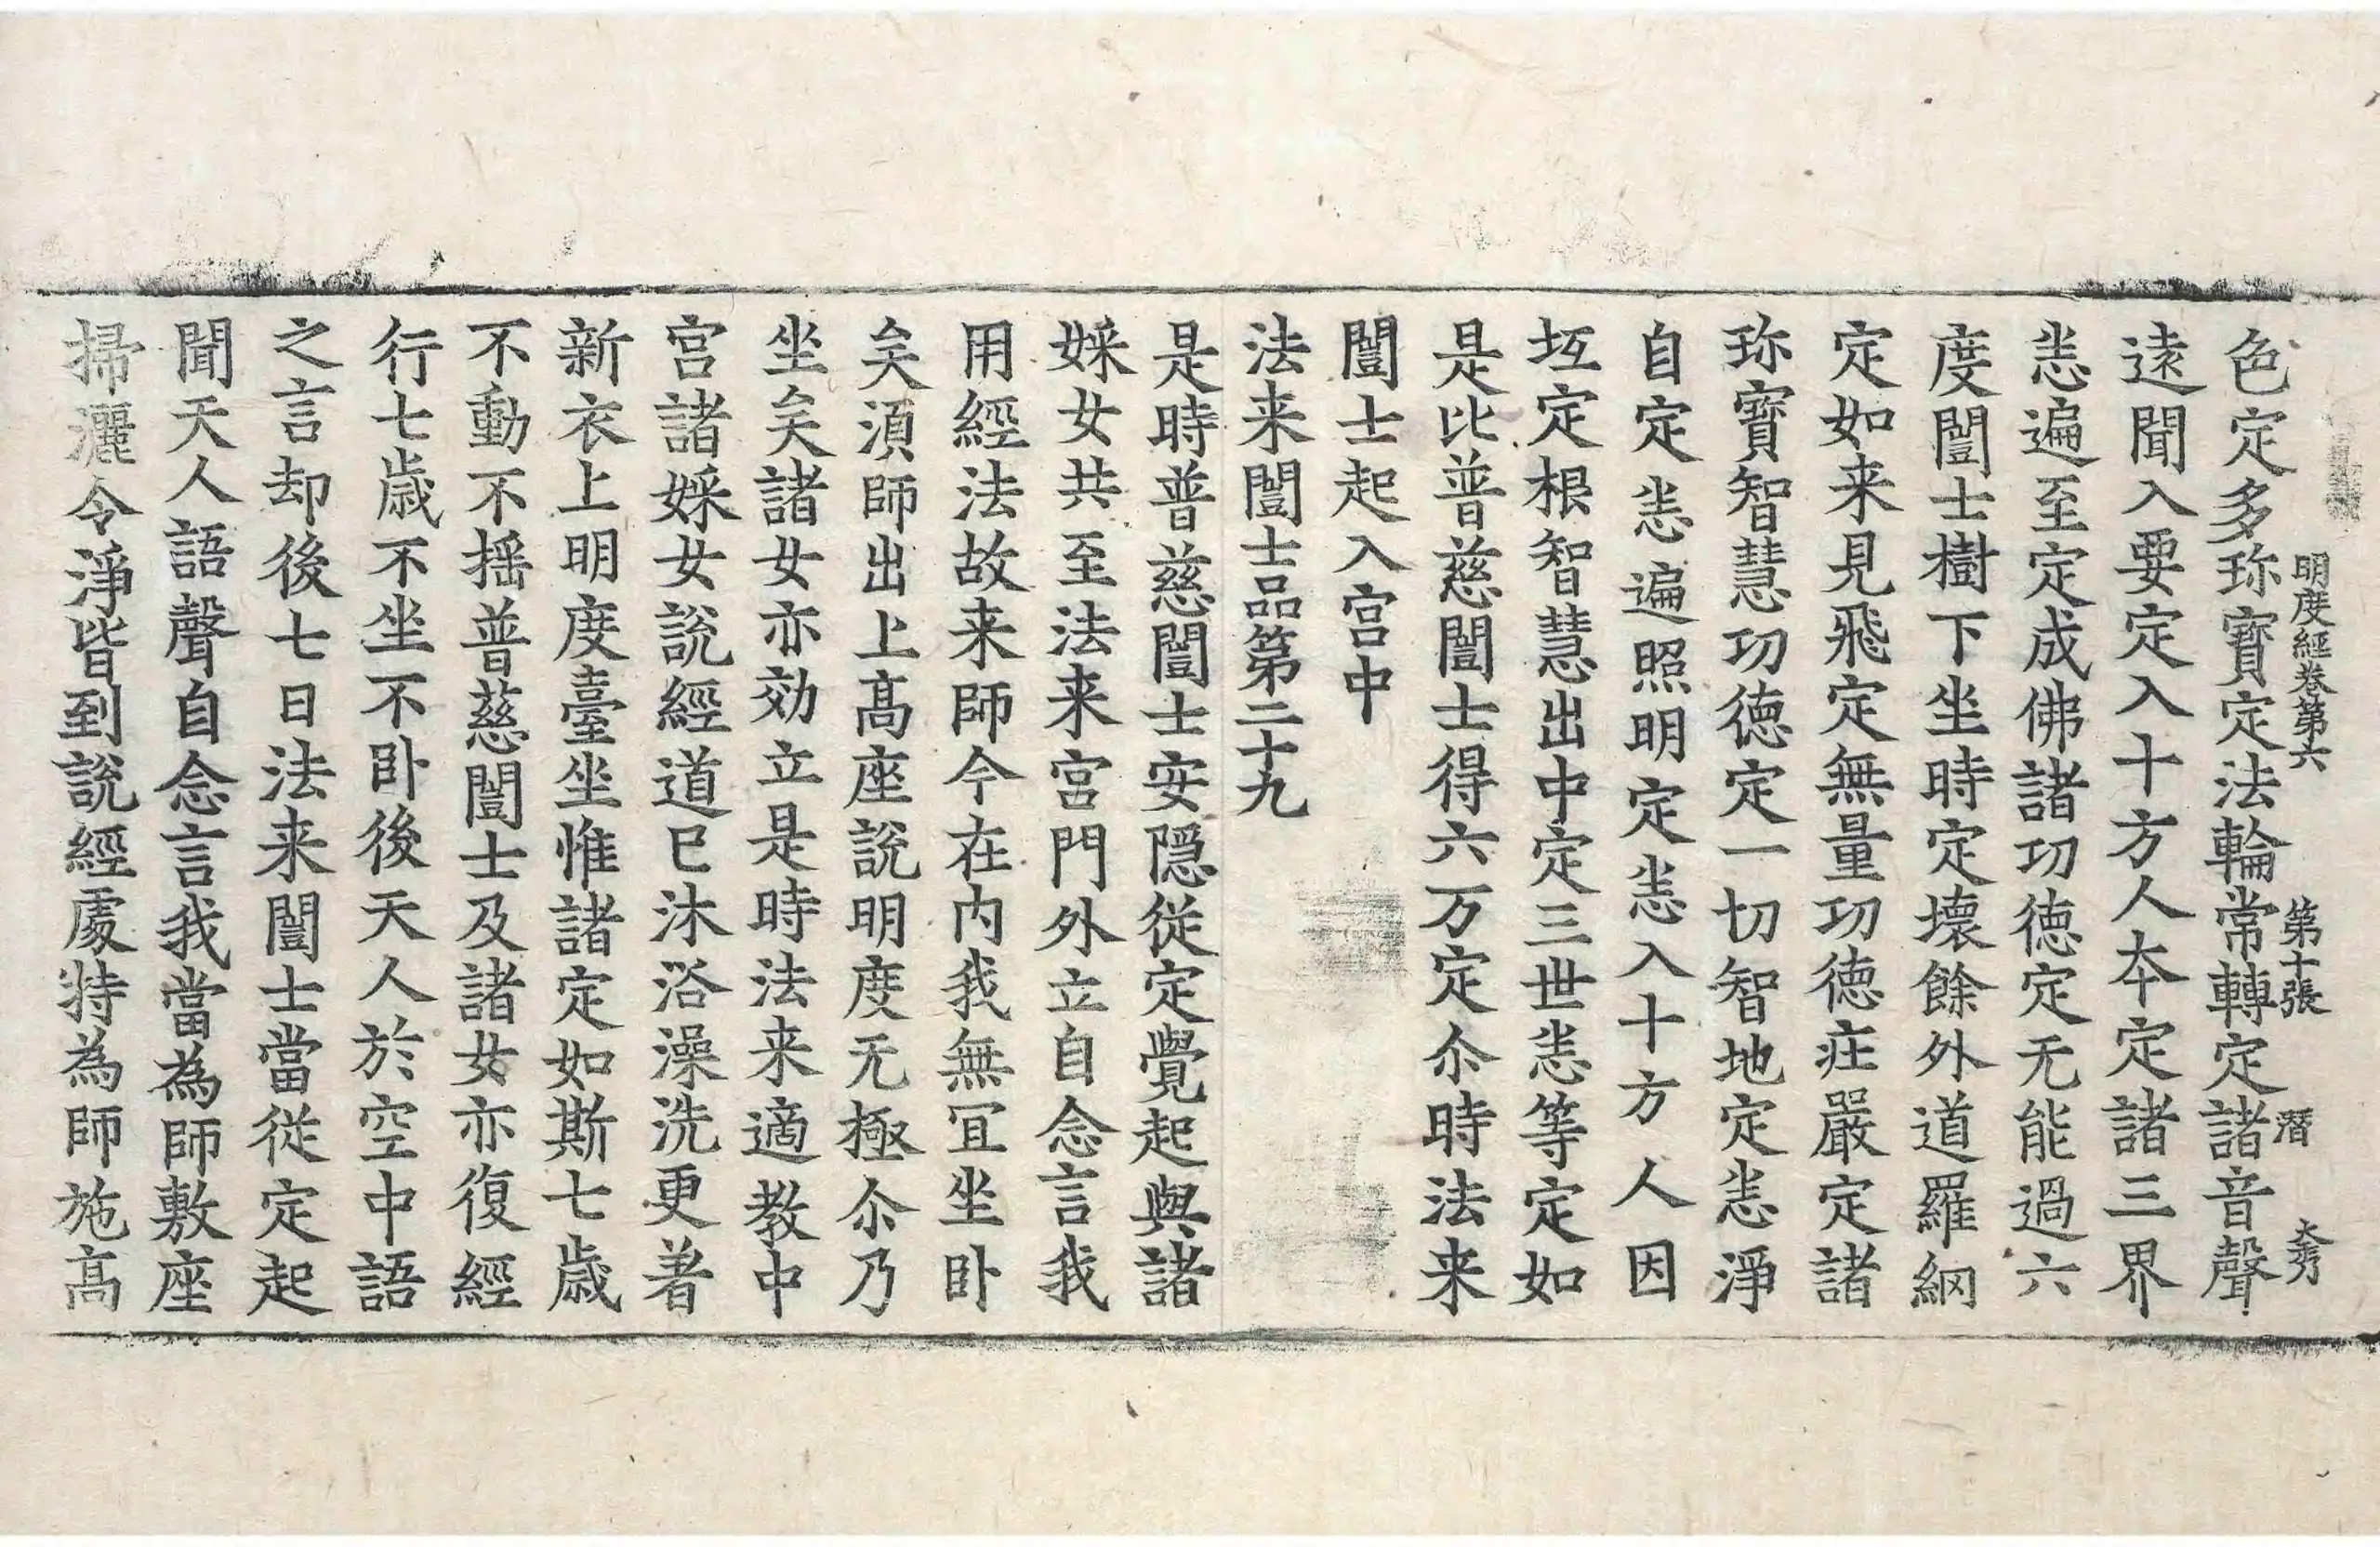 明度經卷第六　第十張　潛　大秀
色定多珎寶定法輪常轉定諸音聲
遠聞入要定入十方人夲定諸三界
恙遍至定成佛諸功徳定无能過六
度闓士樹下坐時定壞餘外道羅網
定如来見飛定無量功徳庄嚴定諸
珎寶智慧功徳定一切智地定恙淨
自定恙遍照明定恙入十方人因
坘定根智慧出中定三世恙等定如
是比普慈闓士得六万定尒時法来
闓士起入宮中
法来闓士品第二十九
是時普慈闓士安隠従定覺起與諸
婇女共至法来宮門外立自念言我
用經法故来師今在內我無冝坐卧
矣湏師出上髙座說明度无極尒乃
坐矣諸女亦効立是時法来適教中
宮諸婇女說經道已沐浴澡洗更著
新衣上明度臺坐惟諸定如斯七歳
不動不揺普慈闓士及諸女亦復經
行七歳不坐不卧後天人於空中語
之言却後七日法来闓士當従定起
聞天人語聲自念言我當為師敷座
掃灑令淨皆到說經䖏特為師施髙